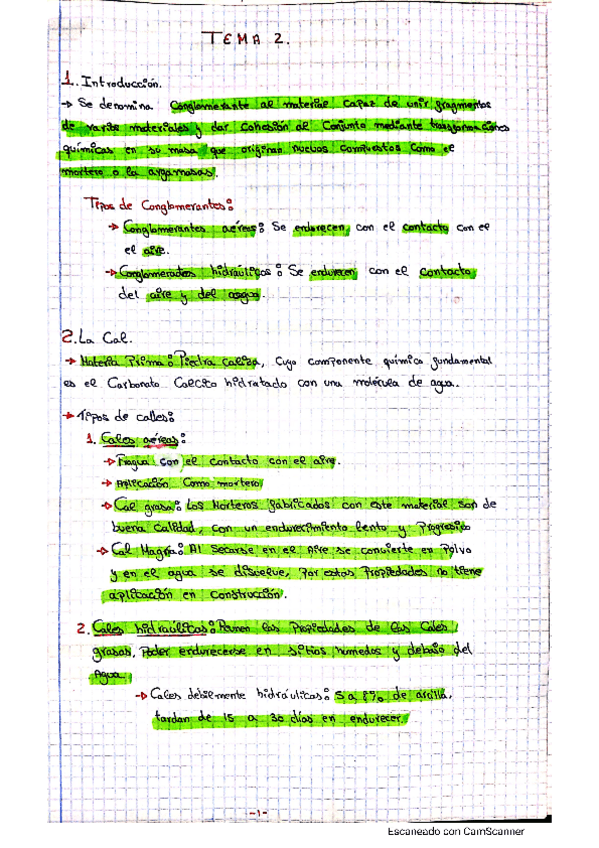 TEMA 2.
1. Introducción.
→ Se denomina Conglomerante al material capaz de unir fragmentos
de varios materiales y dar cohesión al Conjunto mediante transformaciones
químicas en su masa que originan nuevos compuestos como el
mortero o la argamasas.
Tipos de Conglomerantes:
→ Conglomerantes aéreos: Se endurecen con el contacto con el
el aire.
→ Conglomerados hidráulicos: Se endurecen con el contacto
del aire y del asgua.
2. La Cal.
→ Materia Prima: Piedra caliza, Cuyo componente químico fundamental
es el Carbonato Calcico hidratado con una molécula de agua..
→ Tipos de calles:
1. Cales aéreas:
→ Fragua con el contacto con el aire.
→ Aplicación Como mortero
→ Cal grasa: Los Morteros fabricados con este material son de
buena Calidad, con un endurecimiento lento y Progresivo
→ Cal Magra: Al Secarse en el Aire se convierte en Polvo
y en el agua se disuelve, Por estas Propiedades no tiene
aplicación en Construcción.
2. Cales hidraúlicas: Reunen las Propiedades de las Cales
grasas, Poder endurecerse en sitios humedos y debajo del
Agua
→ Cales debilmente hidráulicas: 5 a 8% de arcilla,
tardan de 15 a 30 días en endurecer.
-1-
Escaneado con CamScanner